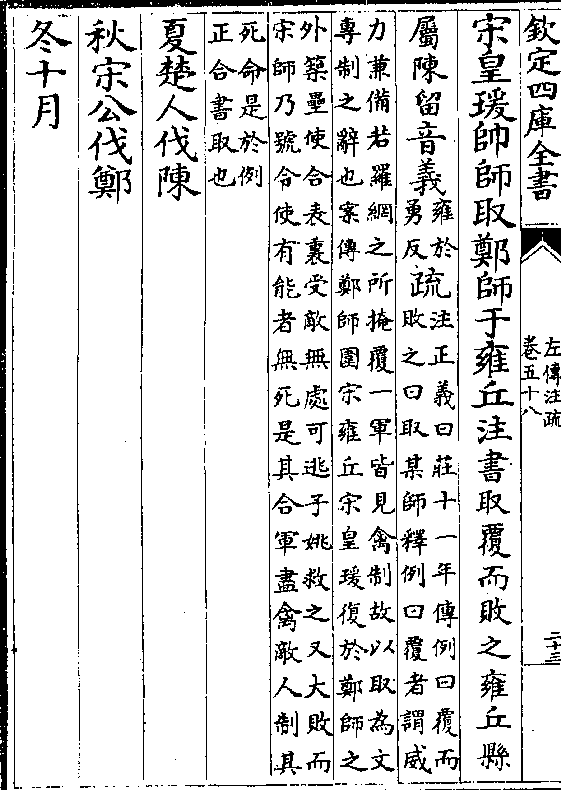 欽定四庫全書
左傳注疏
卷五十八
二十三
宋皇瑗帥師取鄭師于雍丘注書取覆而敗之雍丘縣
屬陳留音義
雍於
勇反
疏
注正義曰莊十一年傳例曰覆而
敗之曰取某師釋例曰覆者謂威
力兼備若羅網之所掩覆一軍皆見禽制故以取為文
專制之辭也案傳鄭師圍宋雍丘宋皇瑗復於鄭師之
外築壘使合表裏受敵無處可逃子姚救之又大敗而
宋師乃號令使有能者無死是其合軍盡禽敵人制其
死命是於例
正合書取也
夏楚人伐陳
秋宋公伐鄭
冬十月